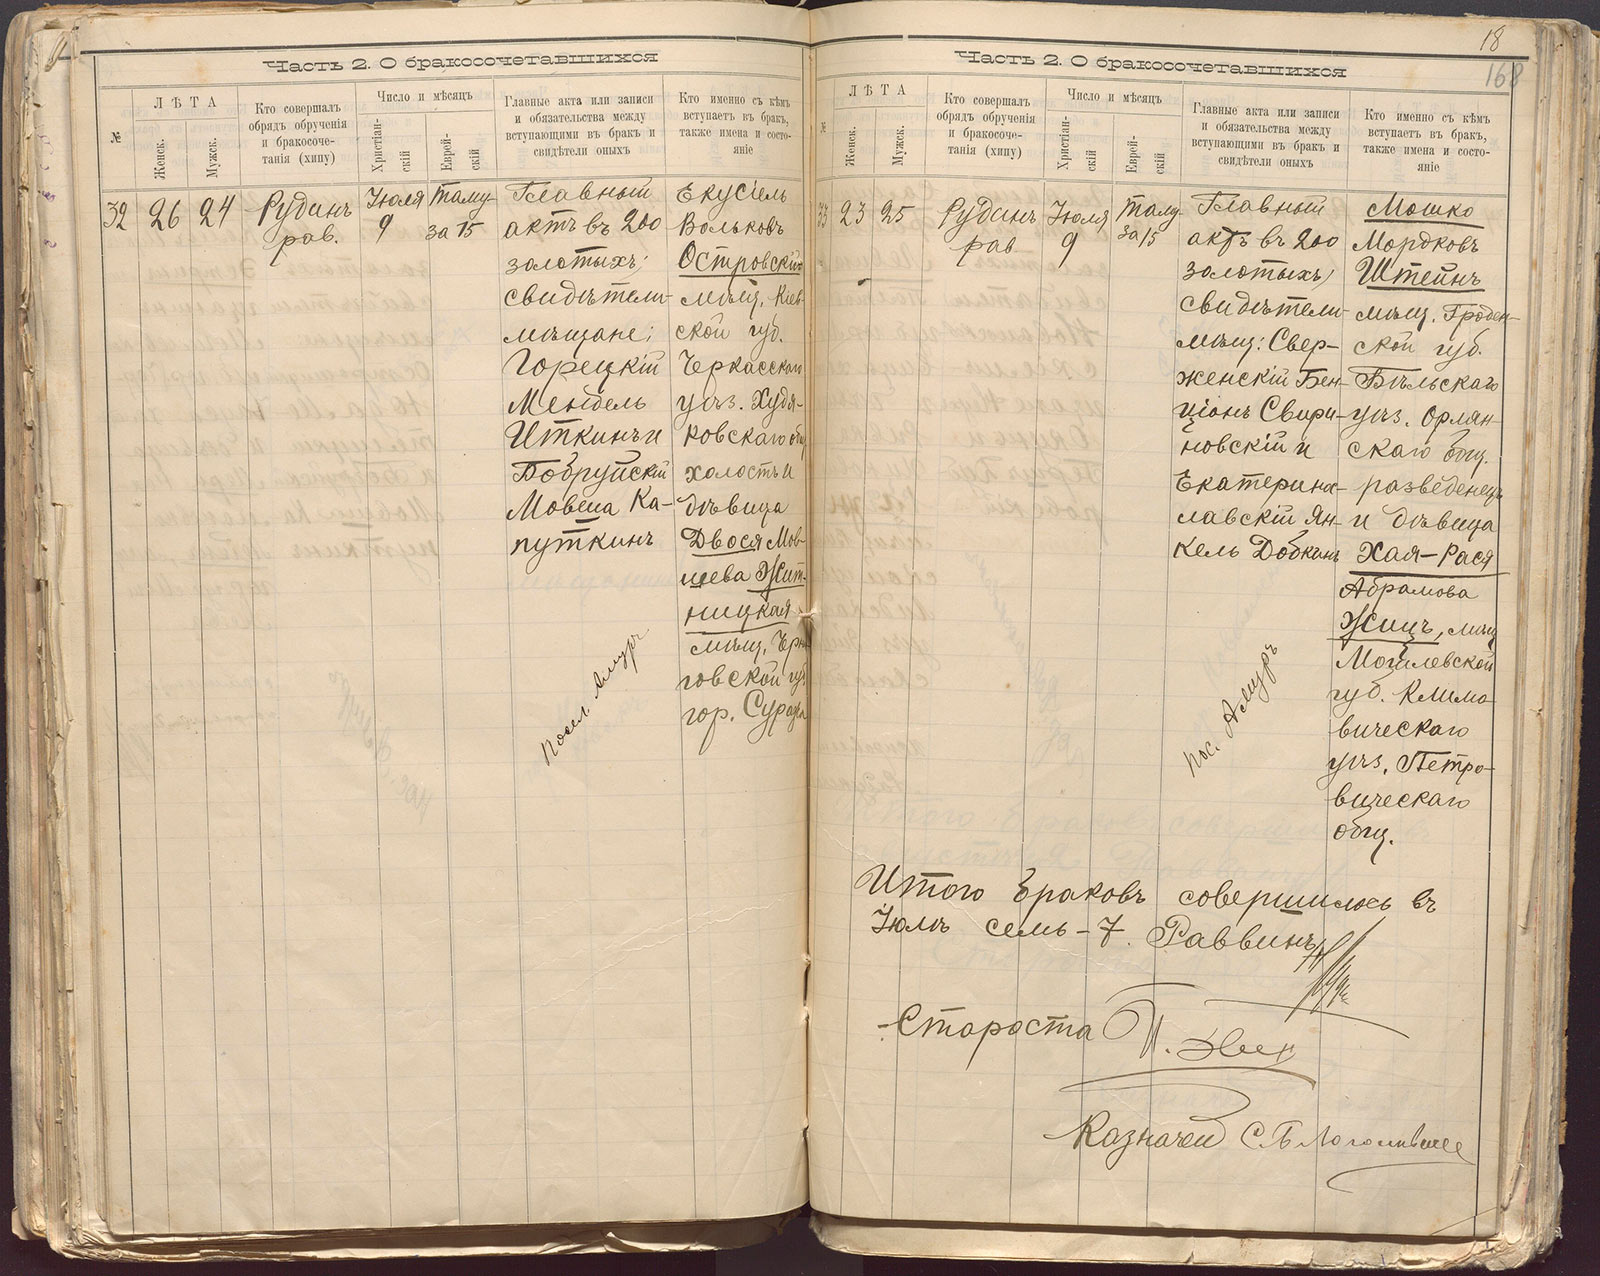 Часть 2. О бракосочетавшихся
№
ЛѢТА
Женск.
Мужск.
Кто совершалъ
обрядъ обрученія
и бракосоче-
танія (хипу)
Число и мѣсяцъ
Христіан-
скій
Еврей-
скій
Главные акта или записи
и обязательства между
вступающими въ бракъ и
свидѣтели оныхъ
Кто именно съ кѣмъ
вступаетъ въ бракъ,
также имена и состо-
яніе
32
26
24
Рудинъ
рав.
Іюля
9
Таму-
за 15
Главный
актъ въ 200
золотыхъ;
свидѣтели-
мѣщане;
Горецкій
Мендель
Иткинъ и
Бобруйскій
Мовша Ка-
путкинъ
посел. Амуръ
Екусіель
Вольковъ
Островскій
мѣщ. Кіев-
ской губ.
Черкасскаго
уѣз. Худя-
ковскаго общ.
холостъ и
дѣвица
Двося Мов-
шева Жит-
ницкая
мѣщ. Черни-
говской губ.
гор. Суража
18
168
Часть 2. О бракосочетавшихся
№
ЛѢТА
Женск.
Мужск.
Кто совершалъ
обрядъ обрученія
и бракосоче-
танія (хипу)
Число и мѣсяцъ
Христіан-
скій
Еврей-
скій
Главные акта или записи
и обязательства между
вступающими въ бракъ и
свидѣтели оныхъ
Кто именно съ кѣмъ
вступаетъ въ бракъ,
также имена и состо-
яніе
33
23
25
Рудинъ
рав
Іюля
9
Таму
за 15
Главный
актъ въ 200
золотыхъ;
свидѣтели-
мѣщ: Свер-
женскій Бен-
ціонъ Свири-
новскій и
Екатерино-
лавскій Ян-
кель Добкинъ
пос. Амуръ
Мошко
Мордковъ
Штейнъ
мѣщ. Гроден-
ской губ.
Бѣльскаго
уѣз. Орлян-
скаго общ.
разведенецъ
и дѣвица
Хая-Рася
Абрамова
Жицъ, мѣщ
Могилевской
губ. Климо-
вическаго
уѣз. Петро-
вическаго
общ.
Итого браковъ совершилось въ
Іюлѣ семь - 7. Раввинъ
Староста
Казначей С.